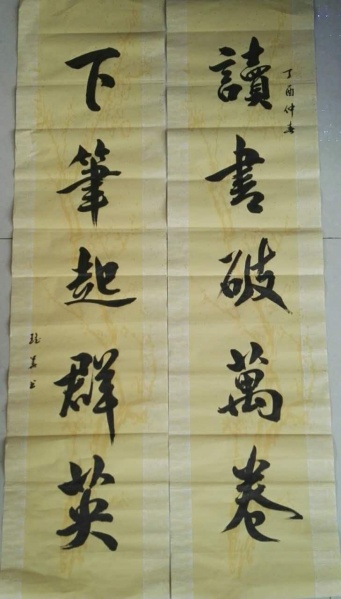 讀書破萬卷
丁酉仲春
下筆起群英